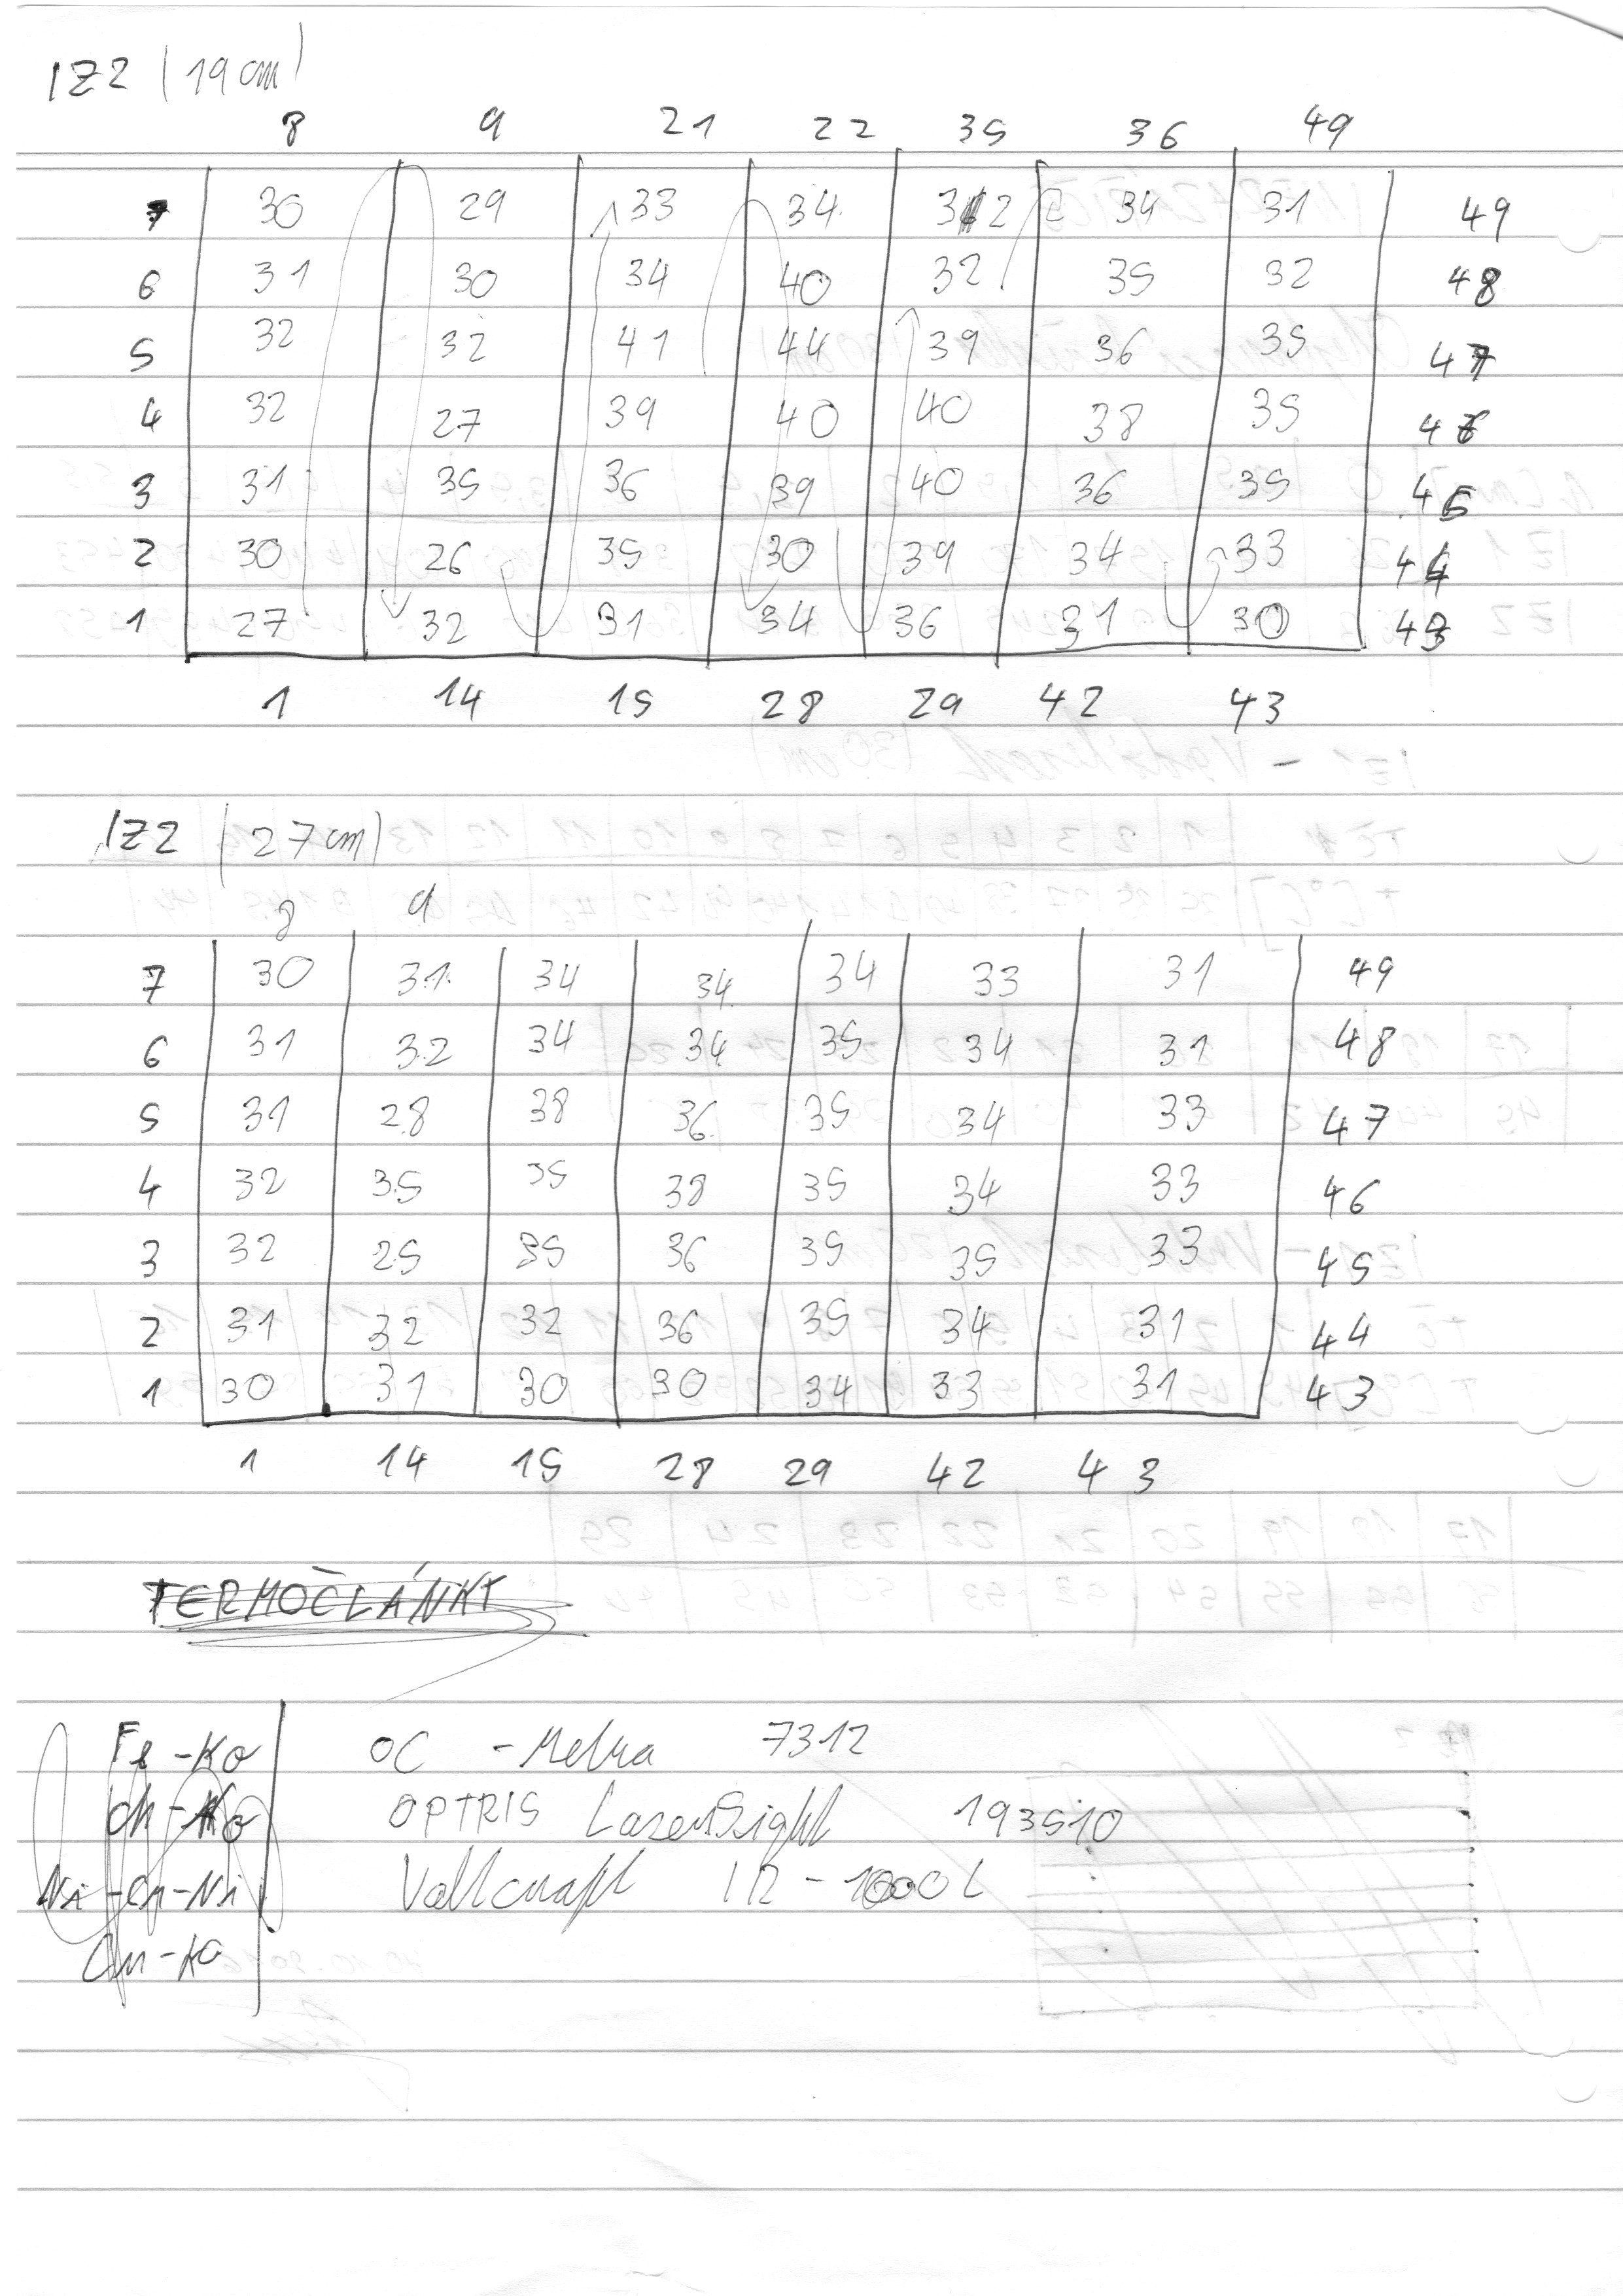 IZ2 (19 cm)
8 9 21 22 35 36 49
7 30 29 33 34 32 34 31 49
6 31 30 34 40 32 35 32 48
5 32 32 41 44 39 36 35 47
4 32 27 39 40 40 38 35 46
3 31 35 36 39 40 36 35 45
2 30 26 35 30 39 34 33 44
1 27 32 31 34 36 31 30 43
1 14 15 28 29 42 43
IZ2 (27 cm)
8 9
7 30 31 34 34 34 33 31 49
6 31 32 34 34 35 34 31 48
5 31 28 38 36 35 34 33 47
4 32 35 35 38 35 34 33 46
3 32 25 35 36 35 35 33 45
2 31 32 32 36 35 34 31 44
1 30 31 30 30 34 33 31 43
1 14 15 28 29 42 43
TERMOČLÁNKY
Fe-Ko OC - Metra 7312
ch-Ko OPTRIS LaserSight 193510
Ni-Cr-Ni Voltcraft IR-1000L
Cu-Ko